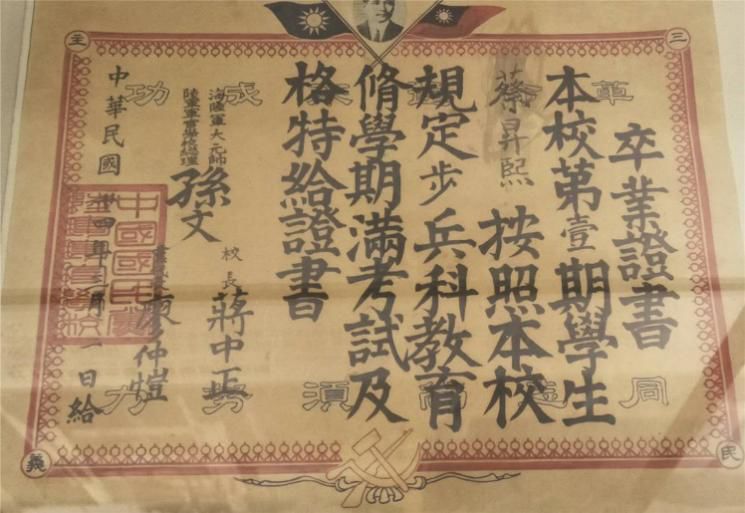 三民主義
革成功
同須努力
卒業證書
本校第壹期學生
蔡昇熙 按照本校
規定步兵科教育
脩學期滿考試及
格特給證書
海陸軍大元帥
陸軍軍官學校總理
孫文
校長 蔣中正
黨代表 廖仲愷
中華民國十四年三月一日給
中國國民黨